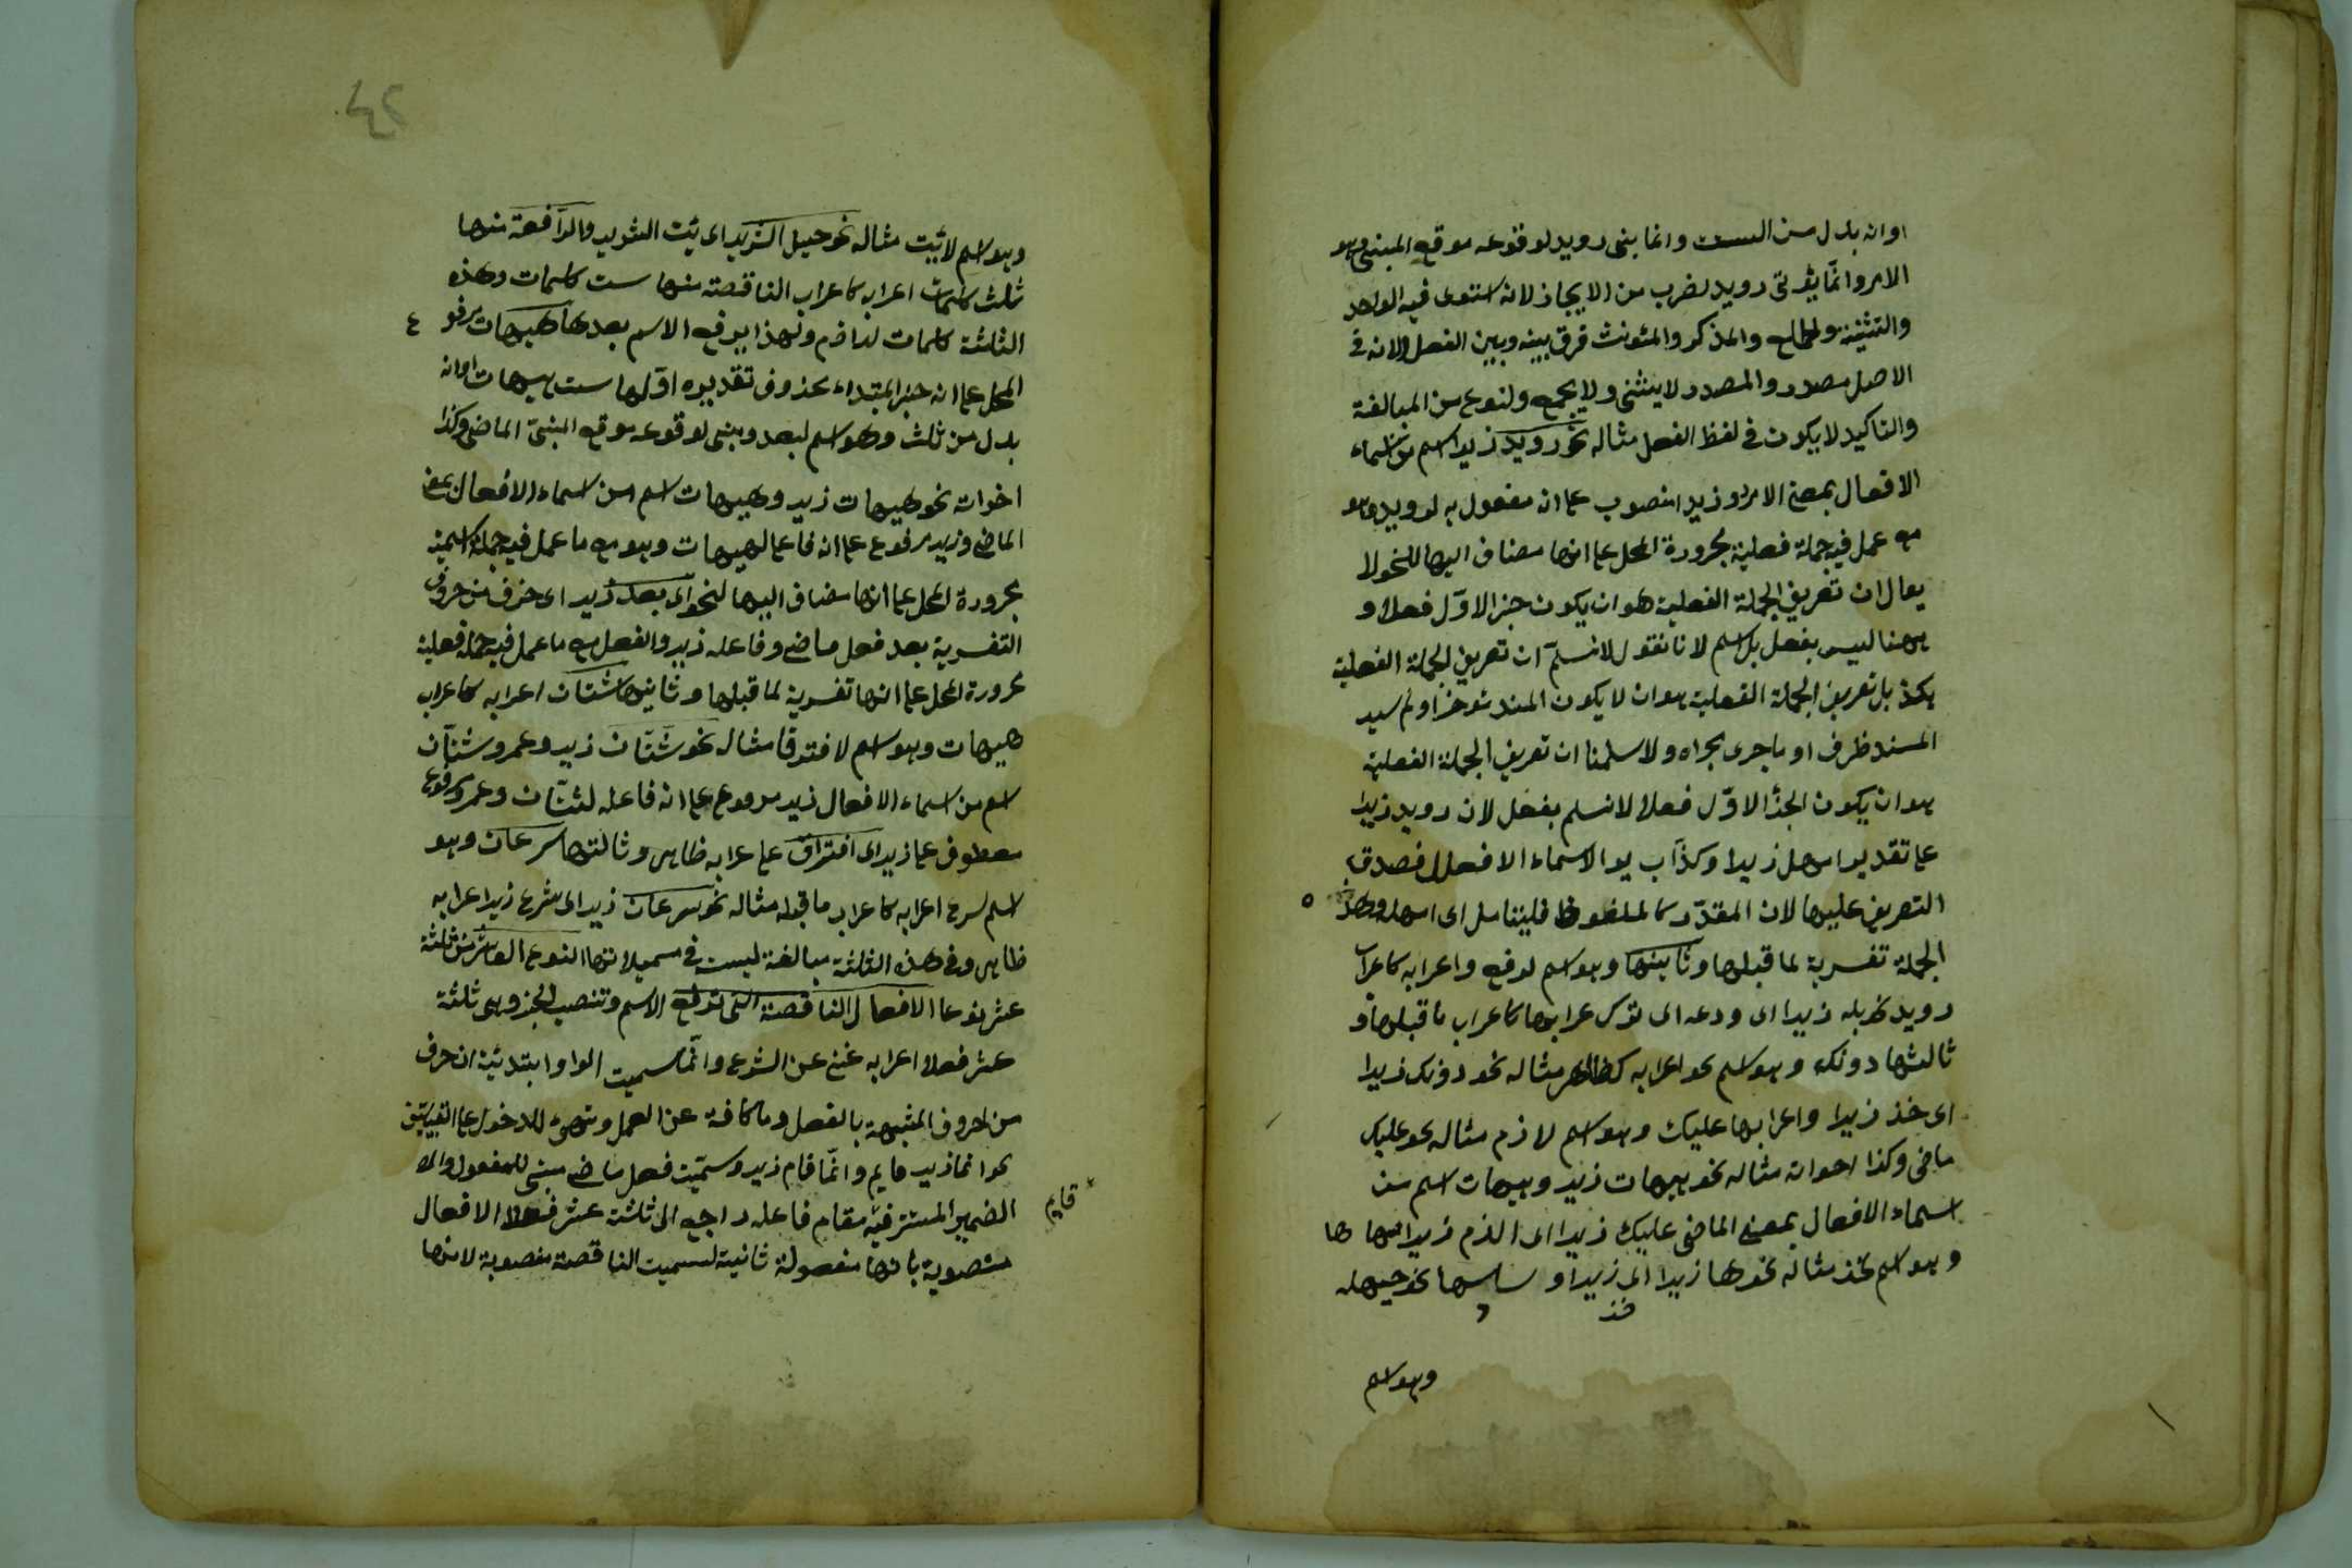 اوانه بدل من الست وانما بنى رويد لوقوعه موقع المبنى وهو
الامر وانما يؤتى رويد لضرب من الايجاز لانه استوى فيه الواحد
والتثنية والجمع والمذكر والمئونث فرق بينه وبين الفعل ولانه فى
الاصل مصدر والمصدر لايثنى ولا يجمع ولنوع من المبالغة
والتاكيد لايكون فى لفظ الفعل مثاله نحو رويد زيدا اسم من اسماء
الافعال بمعنى الامر وزيدا منصوب على انه مفعول به لرويد وهو
مع عمل فيه جملة فعلية مجرورة المحل على انها مضاف اليها للنحو لا
يقال ان تعريف الجملة الفعلية هو ان يكون جزء الاول فعلا و
ههنا ليس بفعل بل اسم لانا نقول لانسلم ان تعريف الجملة الفعلية
هكذ بل تعريف الجملة الفعلية هو ان لا يكون المسند مؤخرا ولم
المسند ظرف او ما جرى مجراه ولا سلمنا ان تعريف الجملة الفعلية
هو ان يكون الجزء الاول فعلا لانسلم بفعل لان رويد زيدا
على تقدير امهل زيدا وكذا الاسماء الافعال فصدق
التعريف عليها لان المقدر كالملفوظ فليتامل اى امهل وهذه
الجملة تفسرية لما قبلها وثانيها وهو اسم لدع واعرابه كاعراب
رويد نحو بله زيدا اى ودعه اى ترك اعرابها كاعراب ما قبلها و
ثالثها دونك وهو اسم نحو اعرابه كظاهر مثاله نحو دونك زيدا
اى خذ زيدا واعرابها عليك وهو اسم لازم مثاله نحو عليك
ماضى وكذا اخواته مثاله نحو هيهات زيد وهيهات اسم من
اسماء الافعال بمعنى الماضى عليك زيدا اى الزم زيدا ها
وهو اسم خذ مثاله نحو ها زيدا اى خذ زيدا و سادسها نحو حيهله
وهو اسم
٤٢
وهو اسم لايت مثاله نحو حيهل الثريد اى يئت الثريد والرافعة منها
ثلث كلمات اعرابه كاعراب الناقصة منها ست كلمات وهذه
الثلثة كلمات لوازم ولهذا يرفع الاسم بعدها هيهات مرفوع
المحل على انه خبر المبتداء محذوف تقديره اولها ست هيهات او انه
بدل من ثلث وهو اسم لبعد وبنى لوقوعه موقع المبنى الماضى وكذا
اخواته نحو هيهات زيد وهيهات اسم من اسماء الافعال بمعنى
الماضى وزيد مرفوع على انه فاعل لهيهات وهو مع ما عمل فيه جملة اسمية
مجرورة المحل على انها مضاف اليها لنحو اى بعد زيد اى حرف من حروف
التفسرية بعد فعل ماضى وفاعله زيد والفعل مع ما عمل فيه جملة فعلية
مجرورة المحل على انها تفسرية لما قبلها وثانيها شتان اعرابه كاعراب
هيهات وهو اسم لافترقا مثال نحو شتان زيد وعمر وشتان
اسم من اسماء الافعال زيد مرفوع على انه فاعله لشتان وعمر مرفوع
معطوف على زيد اى افتراق على اعرابه ظاهر وثالثها سرعان وهو
اسم لسرع اعرابه كاعراب ما قبله مثاله نحو سرعان زيد اى سرع زيد اعرابه
ظاهر وفى هذه الثلثة مبالغة ليست فى مسمياتها النوع العاشر من ثلثة
عشر نوعا الافعال الناقصة التى ترفع الاسم وتنصب الخبر وهى ثلثة
عشر فعلا اعرابه غنى عن الشرع وانما سميت الواو ابتدئية ان حرف
من الحروف المشبهة بالفعل وما كافة عن العمل
نحو انما زيد قايم وانما قام زيد وسميت فعل ماضى مبنى للمفعول
قايم
الضمير المستتر فيه مقام فاعله راجع الى ثلثة عشر فعلا الافعال
منصوبة بانها مفعولة ثانية لسميت الناقصة منصوبة لانها